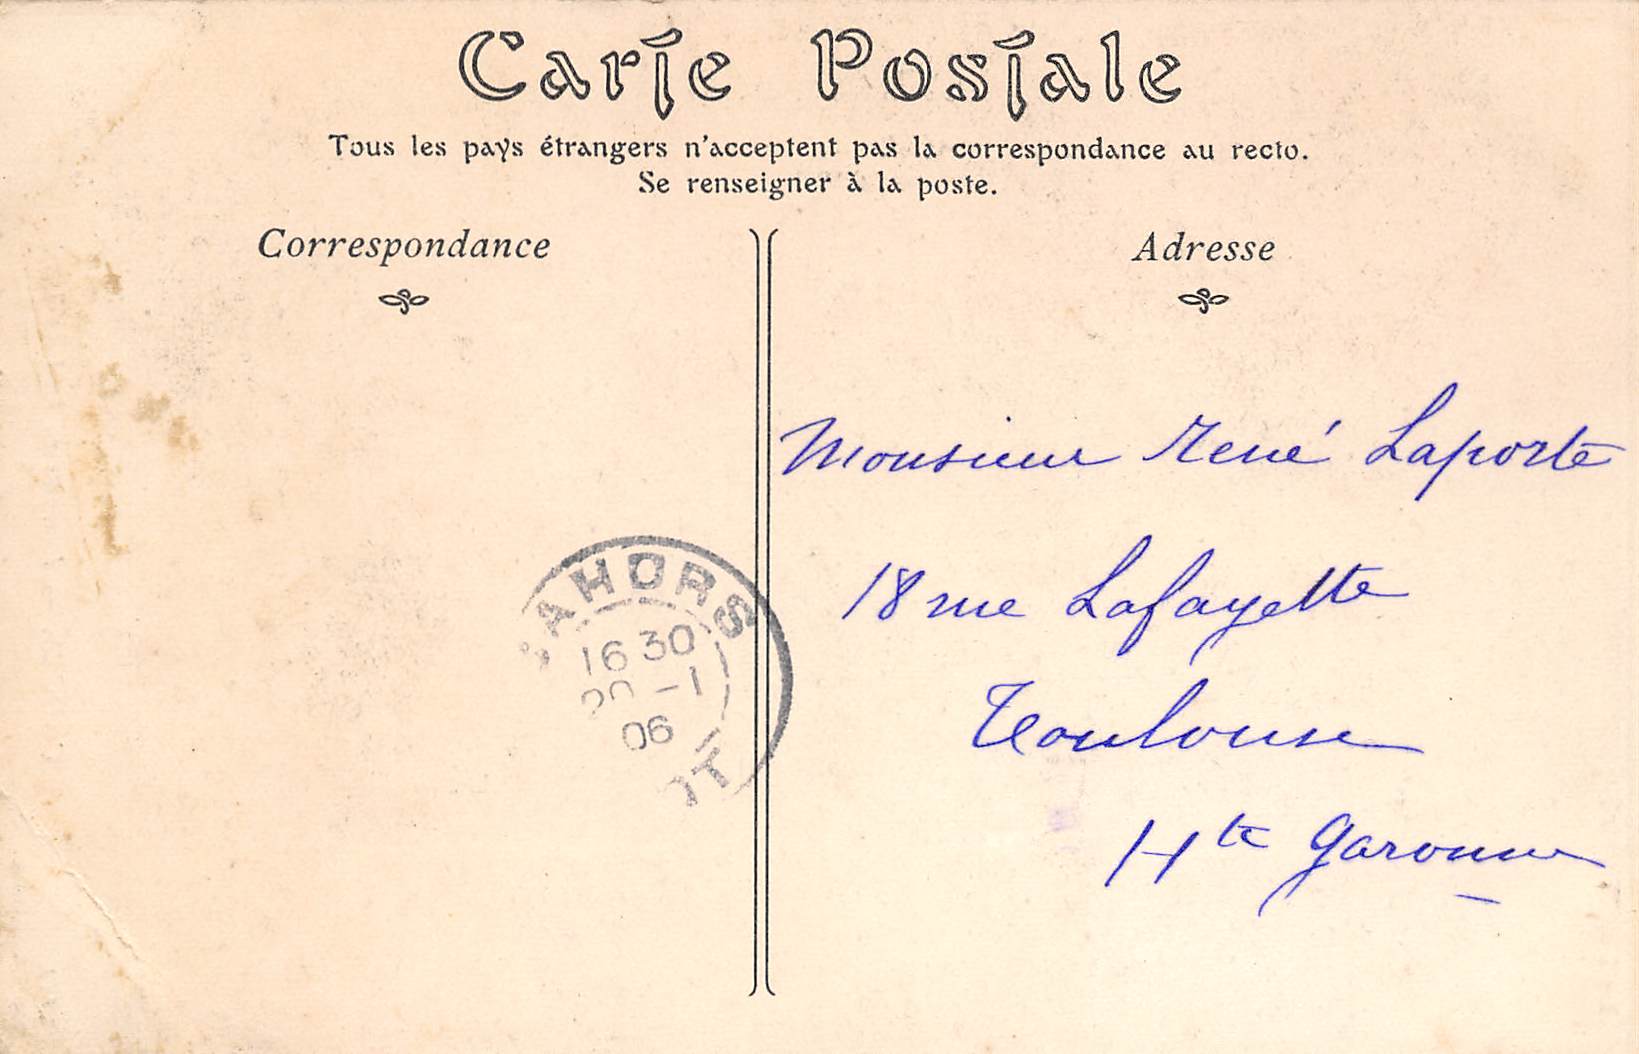 Carte Postale
Tous les pays étrangers n'acceptent pas la correspondance au recto.
Se renseigner à la poste.
Correspondance
Adresse
Monsieur René Laporte
18 rue Lafayette
Toulouse
Hte Garonne
CAHORS
16 30
20 - 1
06
LOT